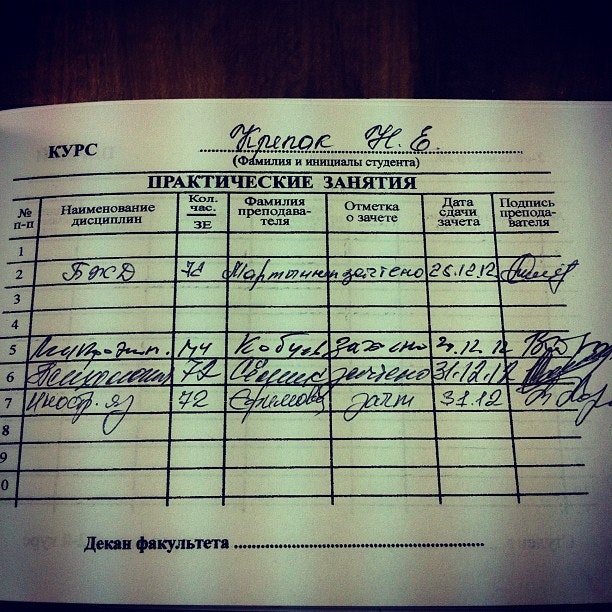 КУРС Крепак Н. Е.
(Фамилия и инициалы студента)
ПРАКТИЧЕСКИЕ ЗАНЯТИЯ
№ п-п Наименование дисциплин Кол. час. ЗЕ Фамилия преподава-теля Отметка о зачете Дата сдачи зачета Подпись препода-вателя
1
2 БЖД 72 зачтено 26.12.12
3
4
5 зачтено 12.12
6 Психология 72 зачтено 31.12.12
7 Иностр. яз 72 Ефремова зачт 31.12
8
9
0
Декан факультета